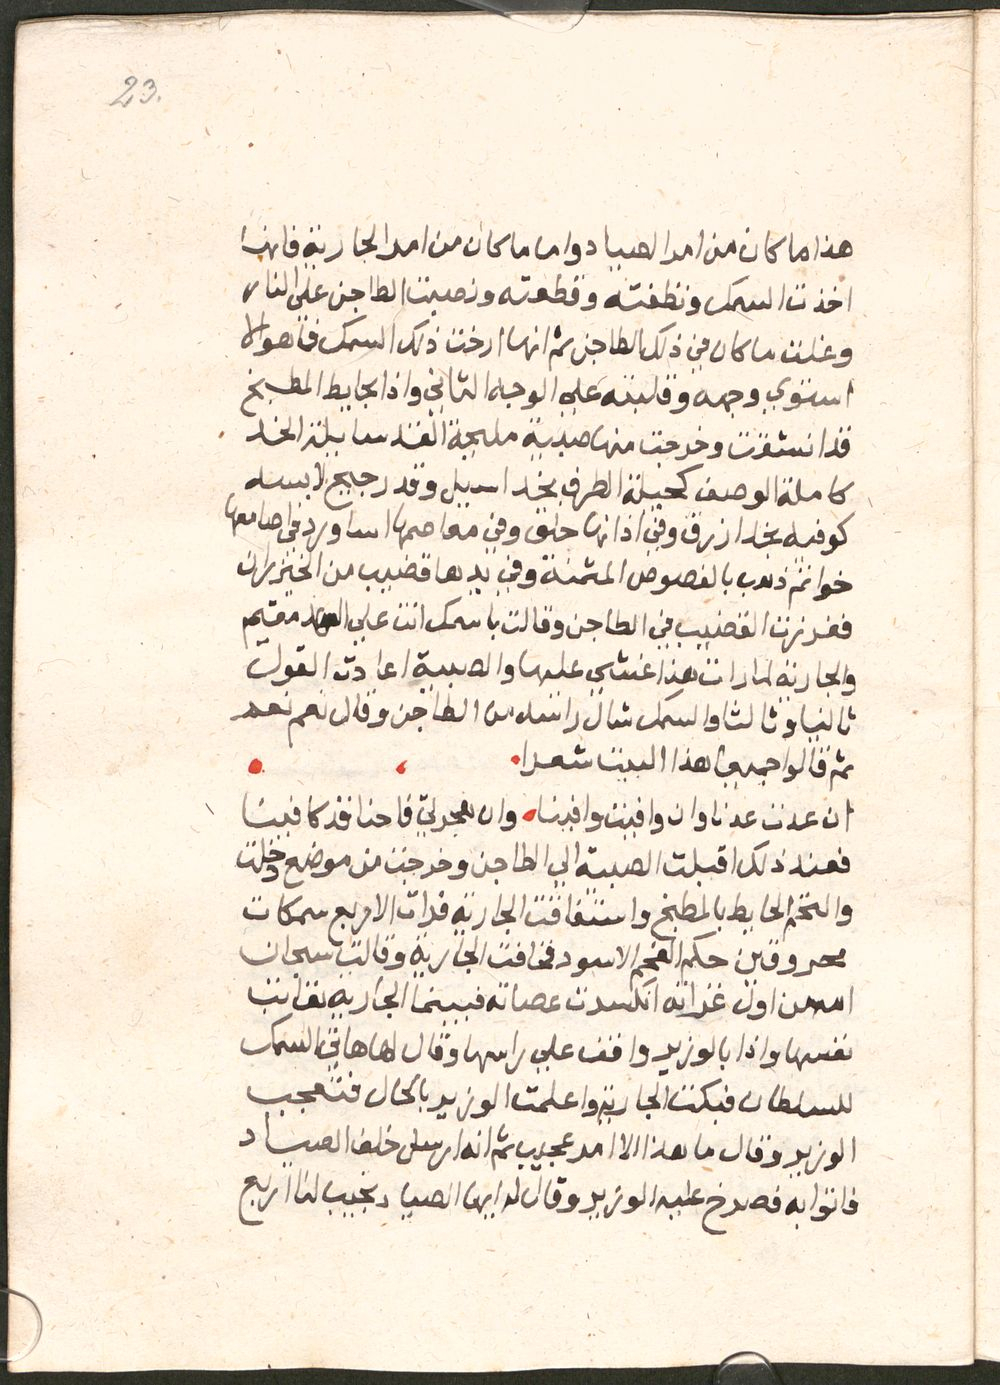 23.
هذا ما كان من امر الصياد واما ما كان من امر الجارية فانها
اخذت السمك ونظفته وقطعته ونصبت الطاجن على النار
وغلت ما كان في ذلك الطاجن ثم انها ارخت ذلك السمك فما هو الا
استوي وجهه وقلبته علي الوجه الثاني واذا بحايط المطبخ
قد انشقت وخرجت منها صبية مليحة القد سايلة الخد
كاملة الوصف كحيلة الطرف بخد اسيل وقد رجيح لابسه
كوفيه بخد ازرق وفي اذانها حلق وفي معاصمها اساور وفي اصابعها
خواتم ذهب بالفصوص المثمنة وفي يدها قضيب من الخيزران
فغرزت القضيب في الطاجن وقالت يا سمك انت علي العهد مقيم
والجارية لما رات هذا غشي عليها والصبية اعادت القول
ثانيا وثالثا والسمك شال راسه من الطاجن وقال نعم نعم
ثم قالوا جميعا هذا البيت شعرا
ان عدت عدنا وان وافيت وافينا وان هجرتي فاحنا قد كافينا
فعند ذلك اقبلت الصبية الي الطاجن وخرجت من موضع دخلت
والتحم الحايط بالمطبخ واستفاقت الجارية فرات الاربع سمكات
محروقين حكم الفحم الاسود فخافت الجارية وقالت سبحان
الله من اول غزاته انكسرت عصاته فبينما الجارية تعاتب
نفسها واذا بالوزير واقف علي راسها وقال لها هاتي السمك
للسلطان فبكت الجارية واعلمت الوزير بالحال فتعجب
الوزير وقال ما هذا الا امر عجيب ثم انه ارسل خلف الصياد
فاتوا به فصرخ عليه الوزير وقال له ايها الصياد تجيب لنا اربع